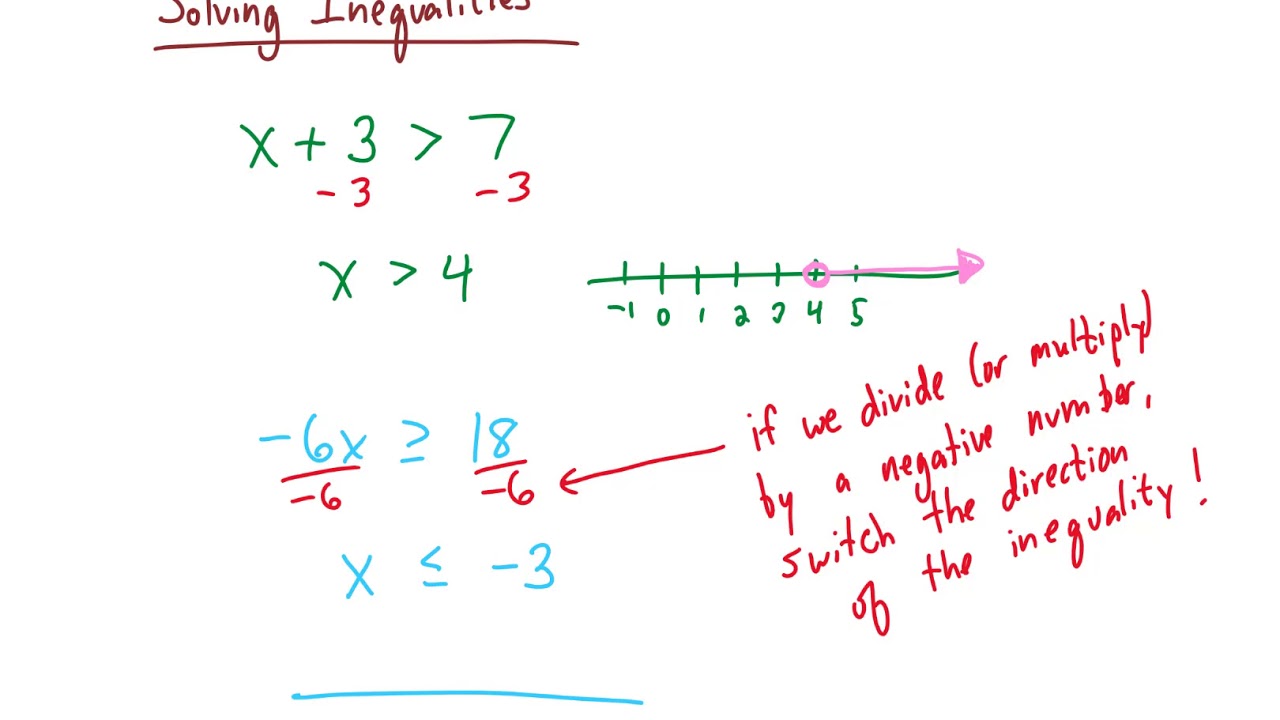 Solving Inequalities
x + 3 > 7
- 3 - 3
x > 4
-1 0 1 2 3 4 5
-6x ≥ 18
-6 -6
x ≤ -3
if we divide (or multiply)
by a negative number,
switch the direction
of the inequality!